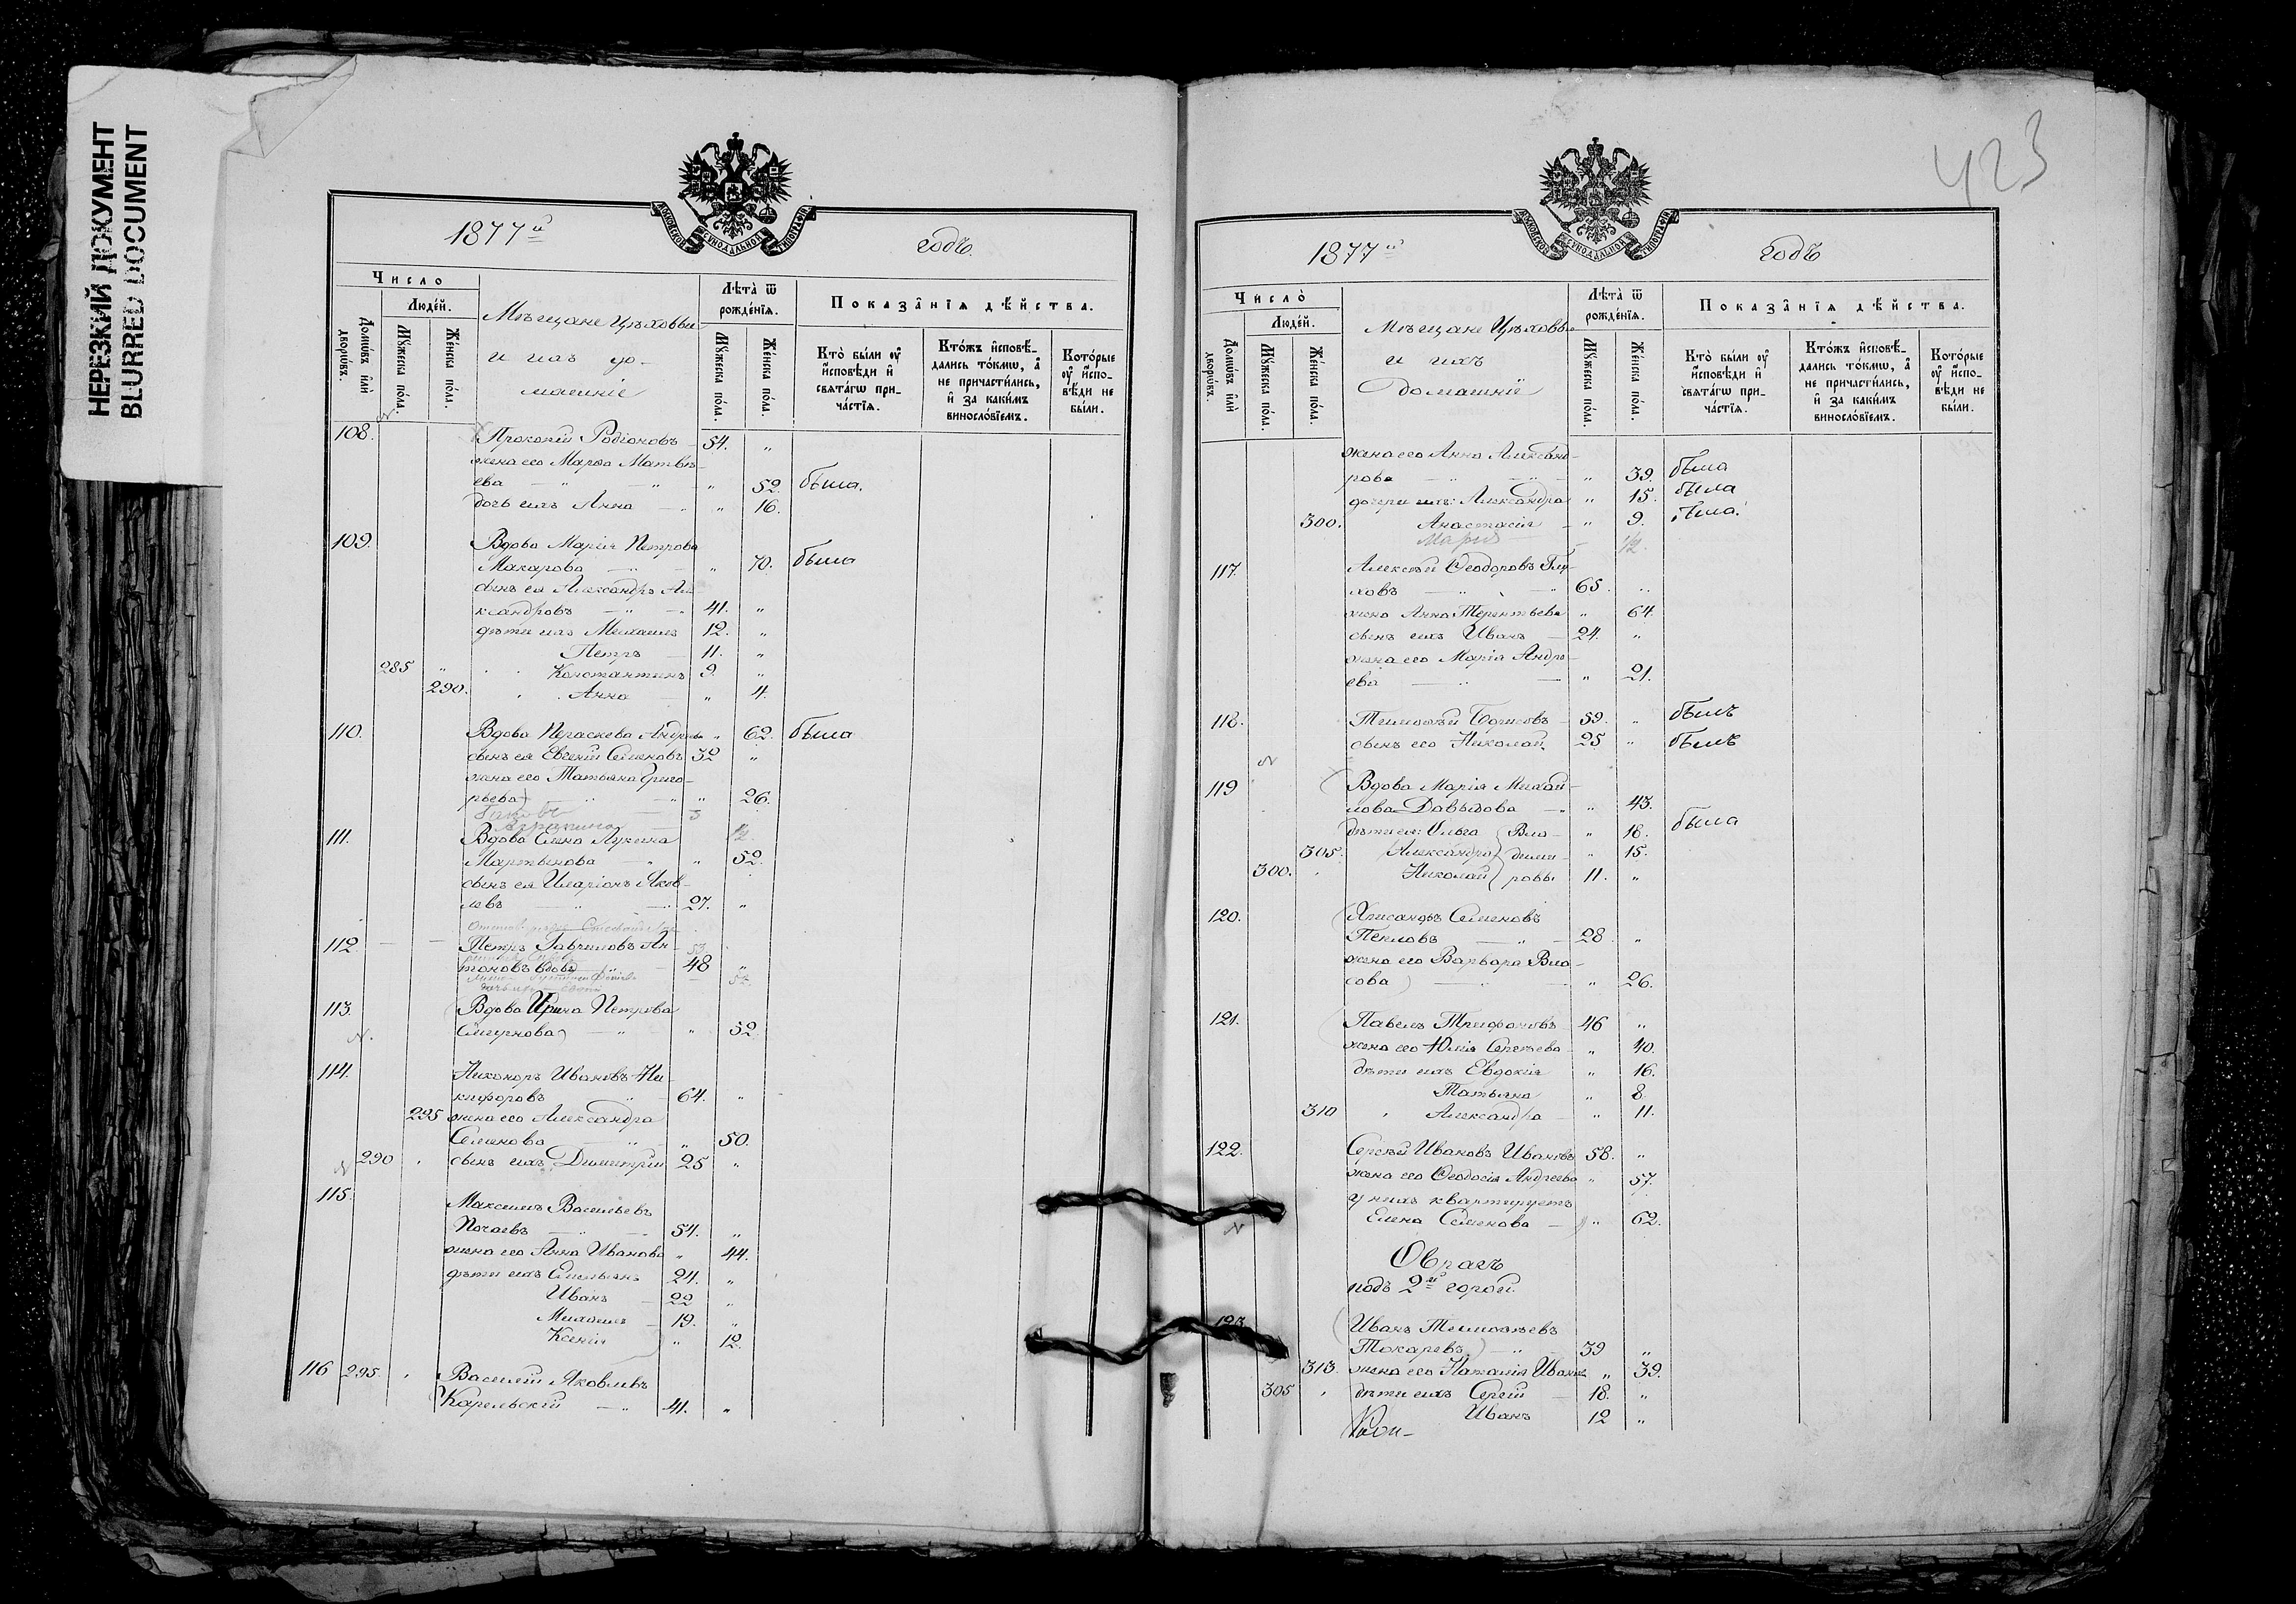 НЕРЕЗКИЙ ДОКУМЕНТ
BLURRED DOCUMENT
МОСКОВСКОЙ СУНОДАЛЬНОЙ ТИПОГРАФIИ
1877й годъ.
Число
Людей.
Домѡвъ илѝ дворѡвъ.
Мꙋжеска пола.
Женска пола.
Мѣщане Цѣховые
и ихъ до-
машнiе
Лѣта ѿ рожденiѧ.
Мꙋжеска пола.
Женска пола.
Показанiѧ дѣйства.
Кто были ᲂу҆ исповѣди и свѧтагѡ при-
частiѧ.
Ктожъ исповѣ-
дались токмѡ, а
не причастились,
и за какимъ
винословiемъ.
Которые
ᲂу҆ испо-
вѣди не
были.
108. Прокопiй Родiоновъ 54. „
жена его Марфа Матвѣ-
ева „ 52. была.
дочь ихъ Анна „ 16.
109. Вдова Марiя Петрова
Макарова „ 70. была
сынъ ея Александръ Але-
ксандровъ 41. „
дѣти ихъ Михаилъ 12. „
Петръ 11. „
285 „ Константинъ 9. „
290. Анна „ 4.
110. Вдова Параскева Андреева „ 62. была
сынъ ея Евгенiй Семеновъ 32 „
жена его Татьяна Григо-
рьева „ 26.
Яковъ 3
111. Вдова Елена Лукина
Мартынова „ 52.
сынъ ея Иларiонъ Яков-
левъ 27. „
112. Петръ Гавриловъ Ан-
тоновъ вдовъ 48 „
113. Вдова Ирина Петрова
Смирнова „ 52.
114. Никаноръ Ивановъ Ни-
кифоровъ 64. „
295 жена его Александра
Семенова „ 50.
290 сынъ ихъ Димитрiй 25 „
115. Максимъ Васильевъ
54. „
жена его Анна Иванова „ 44.
дѣти ихъ Емельянъ 24. „
Иванъ 22 „
Михаилъ 19. „
Ксенiя „ 12.
116 295. Василiй Яковлевъ
Карельскiй 41. „
423
МОСКОВСКОЙ СУНОДАЛЬНОЙ ТИПОГРАФIИ
1877й годъ
Число
Людей.
Домѡвъ илѝ дворѡвъ.
Мꙋжеска пола.
Женска пола.
Мѣщане Цѣховые
и ихъ
домашнiе
Лѣта ѿ рожденiѧ.
Мꙋжеска пола.
Женска пола.
Показанiѧ дѣйства.
Кто были ᲂу҆ исповѣди и свѧтагѡ при-
частiѧ.
Ктожъ исповѣ-
дались токмѡ, а
не причастились,
и за какимъ
винословiемъ.
Которые
ᲂу҆ испо-
вѣди не
были.
жена его Анна Александ-
рова „ 39. была
дочери ихъ: Александра „ 15. была
300. Анастасiя „ 9. была.
Марiя 1/2.
117. Алексѣй Ѳеодоровъ Глу-
ховъ 65. „
жена Анна Терентьева „ 64.
сынъ ихъ Иванъ 24. „
жена его Марiя Андре-
ева „ 21.
118. Тимоѳей Борисовъ 59. „ былъ
сынъ его Николай 25 „ былъ
119 Вдова Марiя Михай-
лова Давыдова „ 43.
дѣти ея: Ольга Вла- „ 18. была
305. Александра дими- „ 15.
300. Николай ровы 11. „
120. Александръ Семеновъ
28 „
жена его Варвара Вла-
сова „ 26.
121. Павелъ Трифоновъ 46 „
жена его Юлiя Сергѣева „ 40.
дѣти ихъ Евдокiя „ 16.
Татьяна „ 8.
310 Александра „ 11.
122. Сергѣй Ивановъ Ивановъ 58. „
жена его Ѳеодосiя Андреева „ 57.
у нихъ квартируетъ
Елена Семенова „ 62.
Оврагъ
подъ 2й горой.
123 Иванъ Тимоѳѣевъ
Токаревъ 39 „
313. жена его Наталiя Иванова „ 39.
305 дѣти ихъ Сергѣй 18. „
Иванъ 12 „